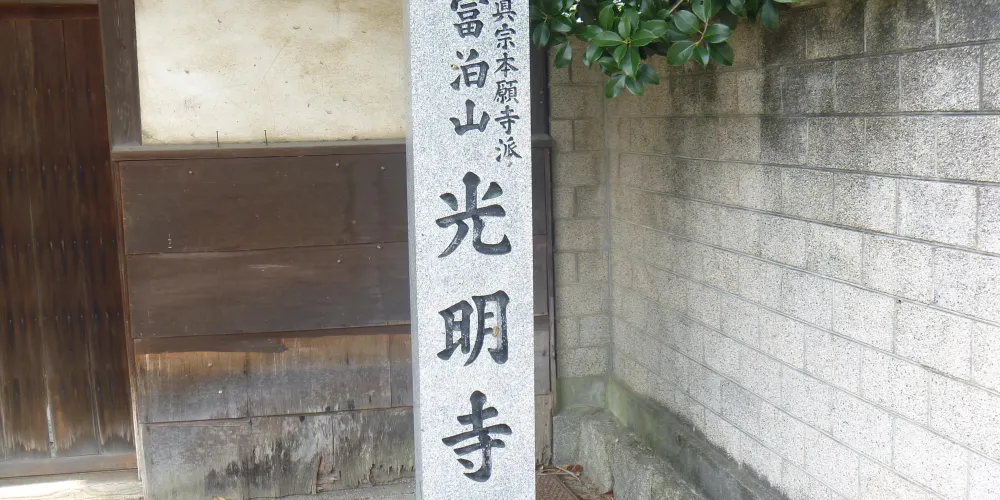 眞宗本願寺派
富泊山 光明寺